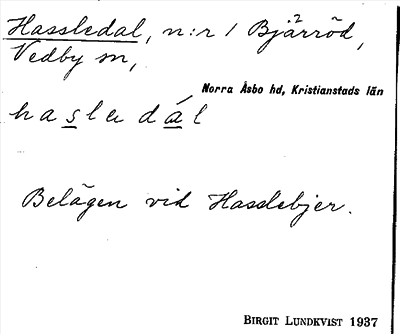 Hassledal, n:r 1 Bjärröd,
Vedby sn,
Norra Åsbo hd, Kristianstads län
hasledál
Belägen vid Hasslebjer.
BIRGIT LUNDKVIST 1937